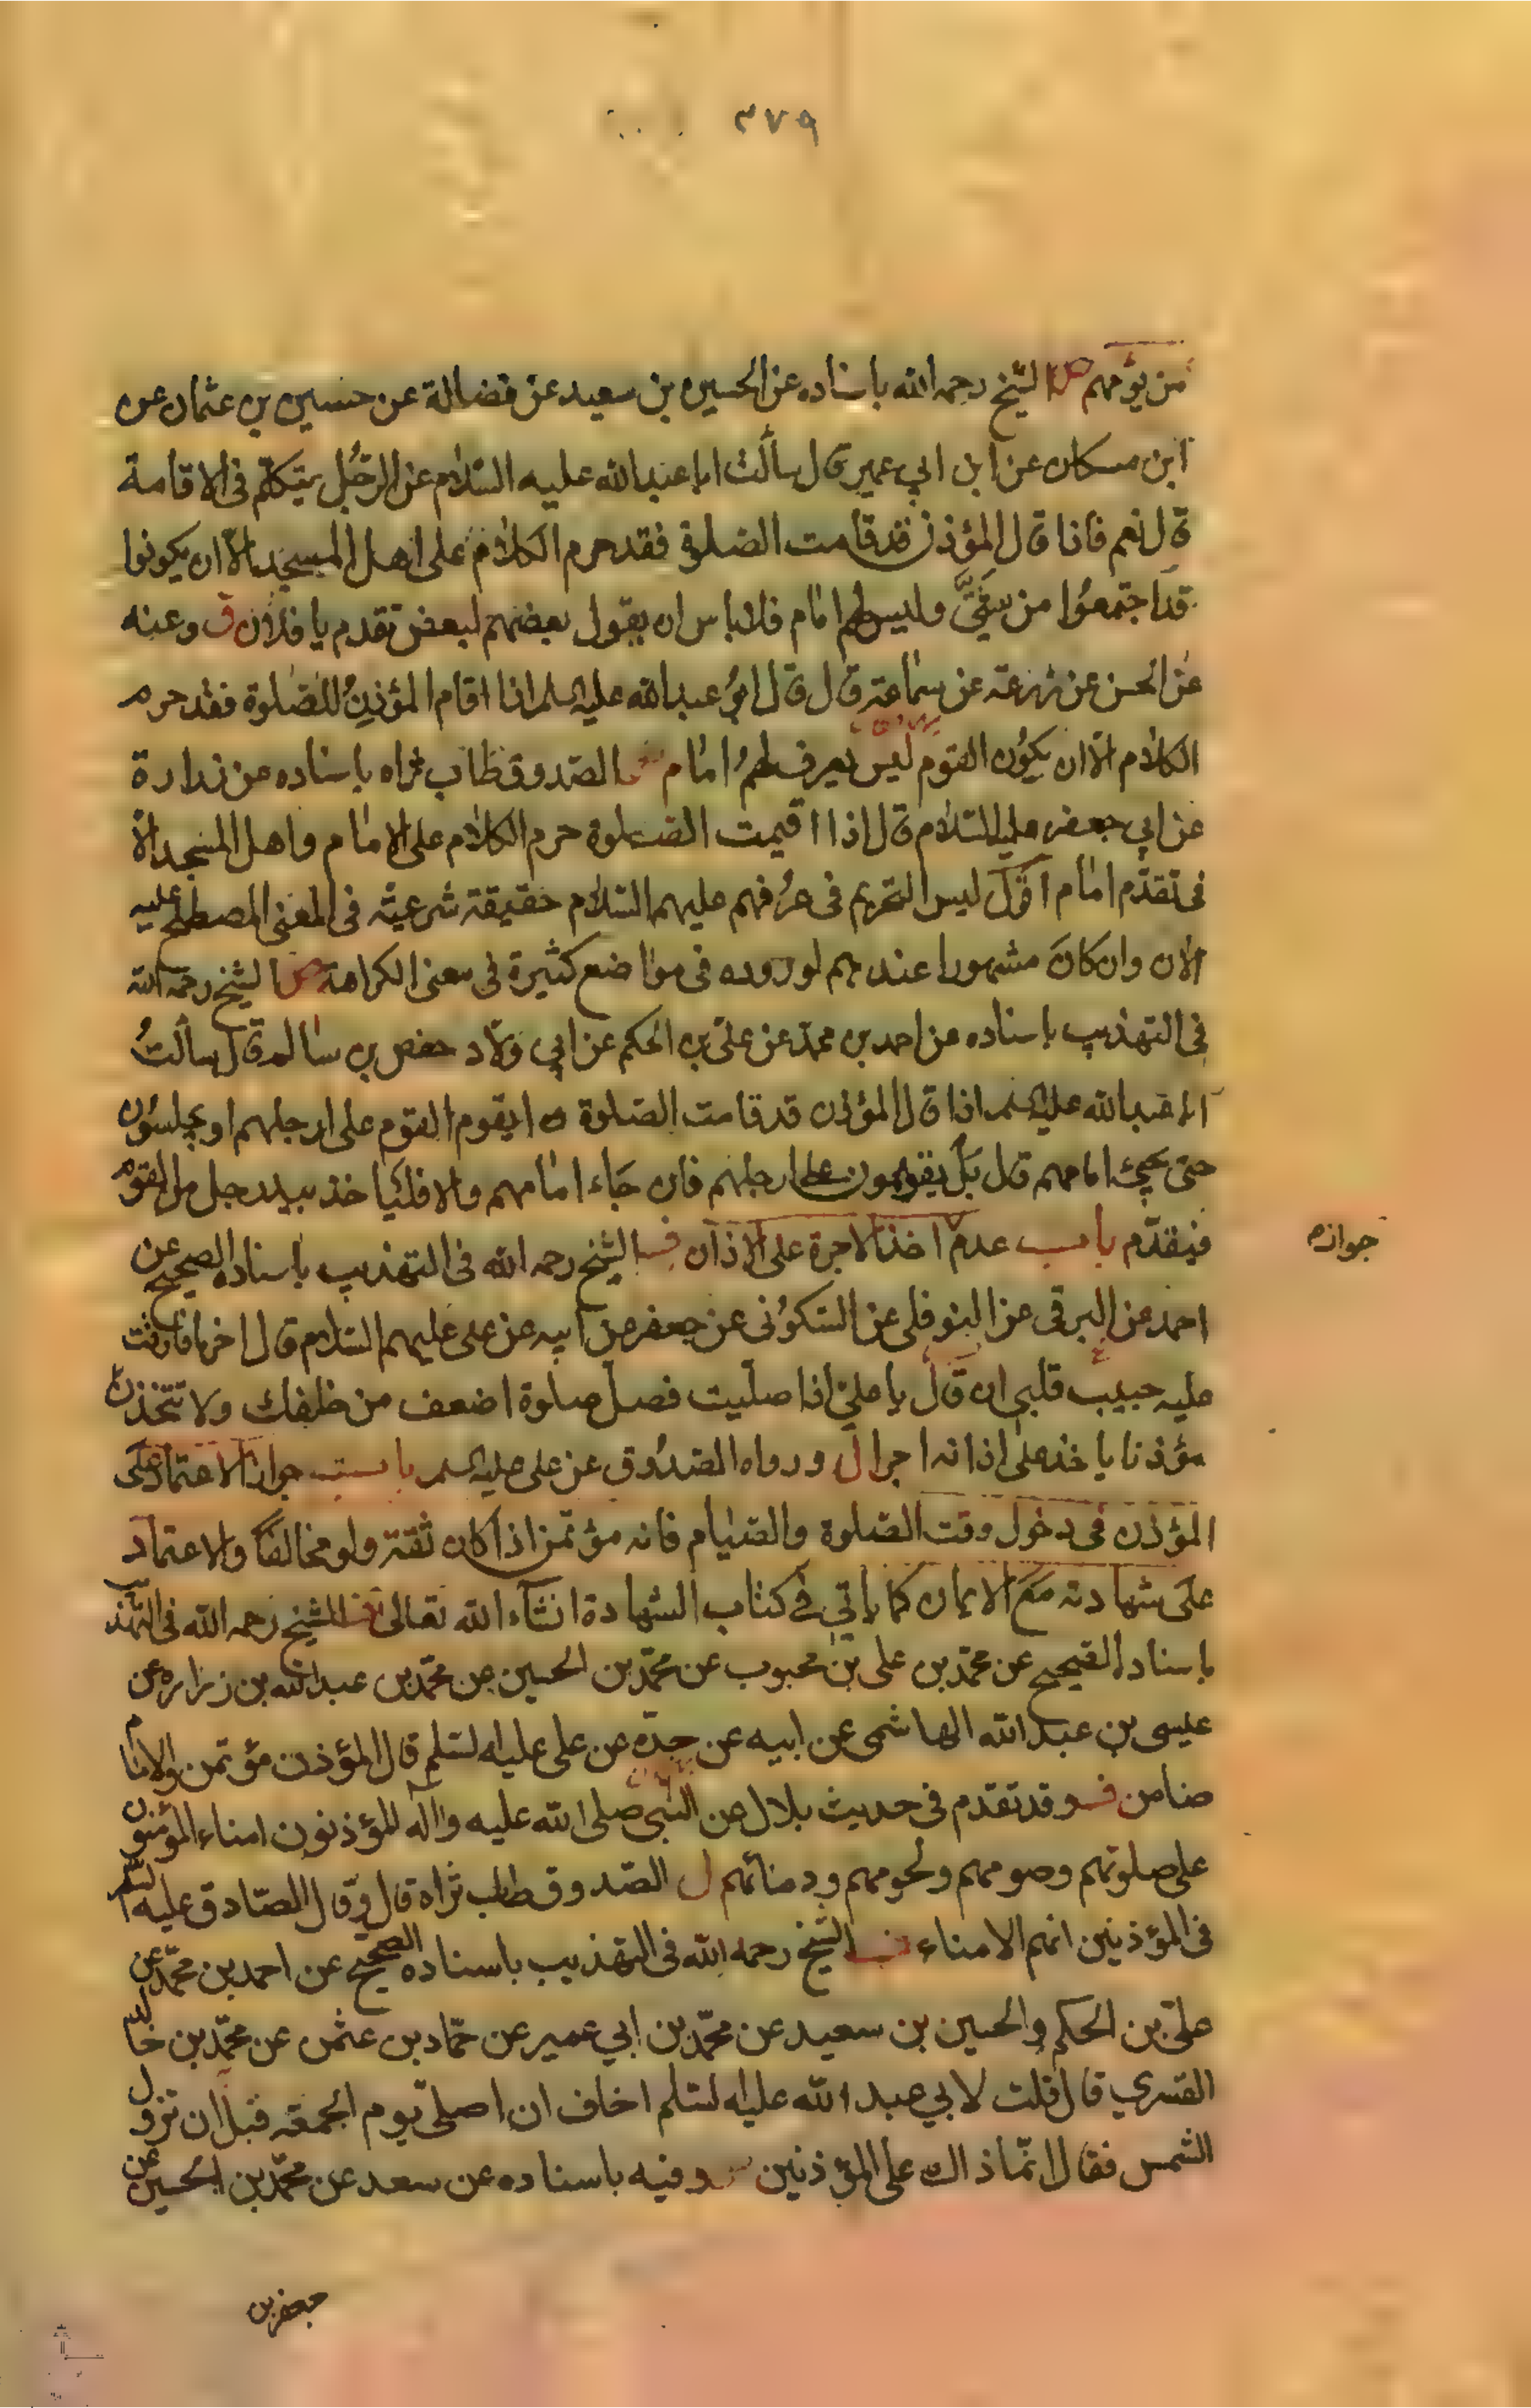 ٣٧٩
من يؤمهم الشيخ رحمه الله باسناده عن الحسين بن سعيد عن فضالة عن حسين بن عثمان عن
ابن مسكان عن ابن ابي عمير قال سألت ابا عبدالله عليه السلام عن الرجل يتكلم فى الاقامة
قال نعم فاذا قال المؤذن قد قامت الصلوة فقد حرم الكلام على اهل المسجد الا ان يكونوا
قد اجتمعوا من شتى وليس لهم امام فلا باس ان يقول بعضهم لبعض تقدم يا فلان ق وعنه
عن الحسن عن زرعة عن سماعة قال قال ابو عبدالله عليه السلم اذا اقام المؤذن للصلوة فقد حرم
الكلام الا ان يكون القوم ليس يعرف لهم امام الصدوق طاب ثراه باسناده عن زرارة
عن ابي جعفر عليه السلام قال اذا اقيمت الصلوة حرم الكلام على الامام واهل المسجد الا
فى تقديم امام اقول ليس التحريم فى عرفهم عليهم السلام حقيقة شرعية فى المعنى المصطلح عليه
الان وان كان مشهورا عندهم لوروده فى مواضع كثيرة فى معنى الكراهة الشيخ رحمه الله
فى التهذيب باسناده عن احمد بن محمد عن على بن الحكم عن ابي ولاد حفص بن سالم قال سالت
ابا عبدالله عليه السلم اذا قال المؤذن قد قامت الصلوة ايقوم القوم على ارجلهم او يجلسون
حتى يجئ امامهم قال بل يقومون على ارجلهم فان جاء امامهم والا فليأخذ بيد رجل من القوم
فيقدم باب عدم اخذ الاجرة على الاذان الشيخ رحمه الله فى التهذيب باسناده الصحيح عن
جوازه
احمد عن البرقى عن النوفلى عن السكونى عن جعفر عن ابيه عن على عليهم السلام قال اخر ما فارقت
عليه حبيب قلبى ان قال يا على اذا صليت فصل صلوة اضعف من خلفك ولا تتخذن
مؤذنا ياخذ على اذانه اجرا ل ورواه الصدوق عن على عليه السلم باب جواز الاعتماد على
المؤذن فى دخول وقت الصلوة والصيام فانه مؤتمن اذا كان ثقة ولو مخالفا والاعتماد
على شهادته مع الايمان كما ياتي فى كتاب الشهادة انشاء الله تعالى الشيخ رحمه الله فى التهذيب
باسناده الصحيح عن محمد بن على بن محبوب عن محمد بن الحسين عن محمد بن عبدالله بن زراره عن
عيسى بن عبدالله الهاشمى عن ابيه عن جده عن على عليه السلم قال المؤذن مؤتمن والامام
ضامن وقد تقدم فى حديث بلال عن النبى صلى الله عليه وآله المؤذنون امناء المؤمنين
على صلوتهم وصومهم ولحومهم ودمائهم ل الصدوق طاب ثراه قال وقال الصادق عليه السلم
فى المؤذنين انهم الامناء الشيخ رحمه الله فى التهذيب باسناده الصحيح عن احمد بن محمد عن
على بن الحكم والحسين بن سعيد عن محمد بن ابي عمير عن حماد بن عثمن عن محمد بن خالد
القسري قال قلت لابي عبدالله عليه السلم اخاف ان اصلى يوم الجمعه قبل ان تزول
الشمس فقال انما ذاك على المؤذنين وفيه باسناده عن سعد عن محمد بن الحسين عن
جعفر بن